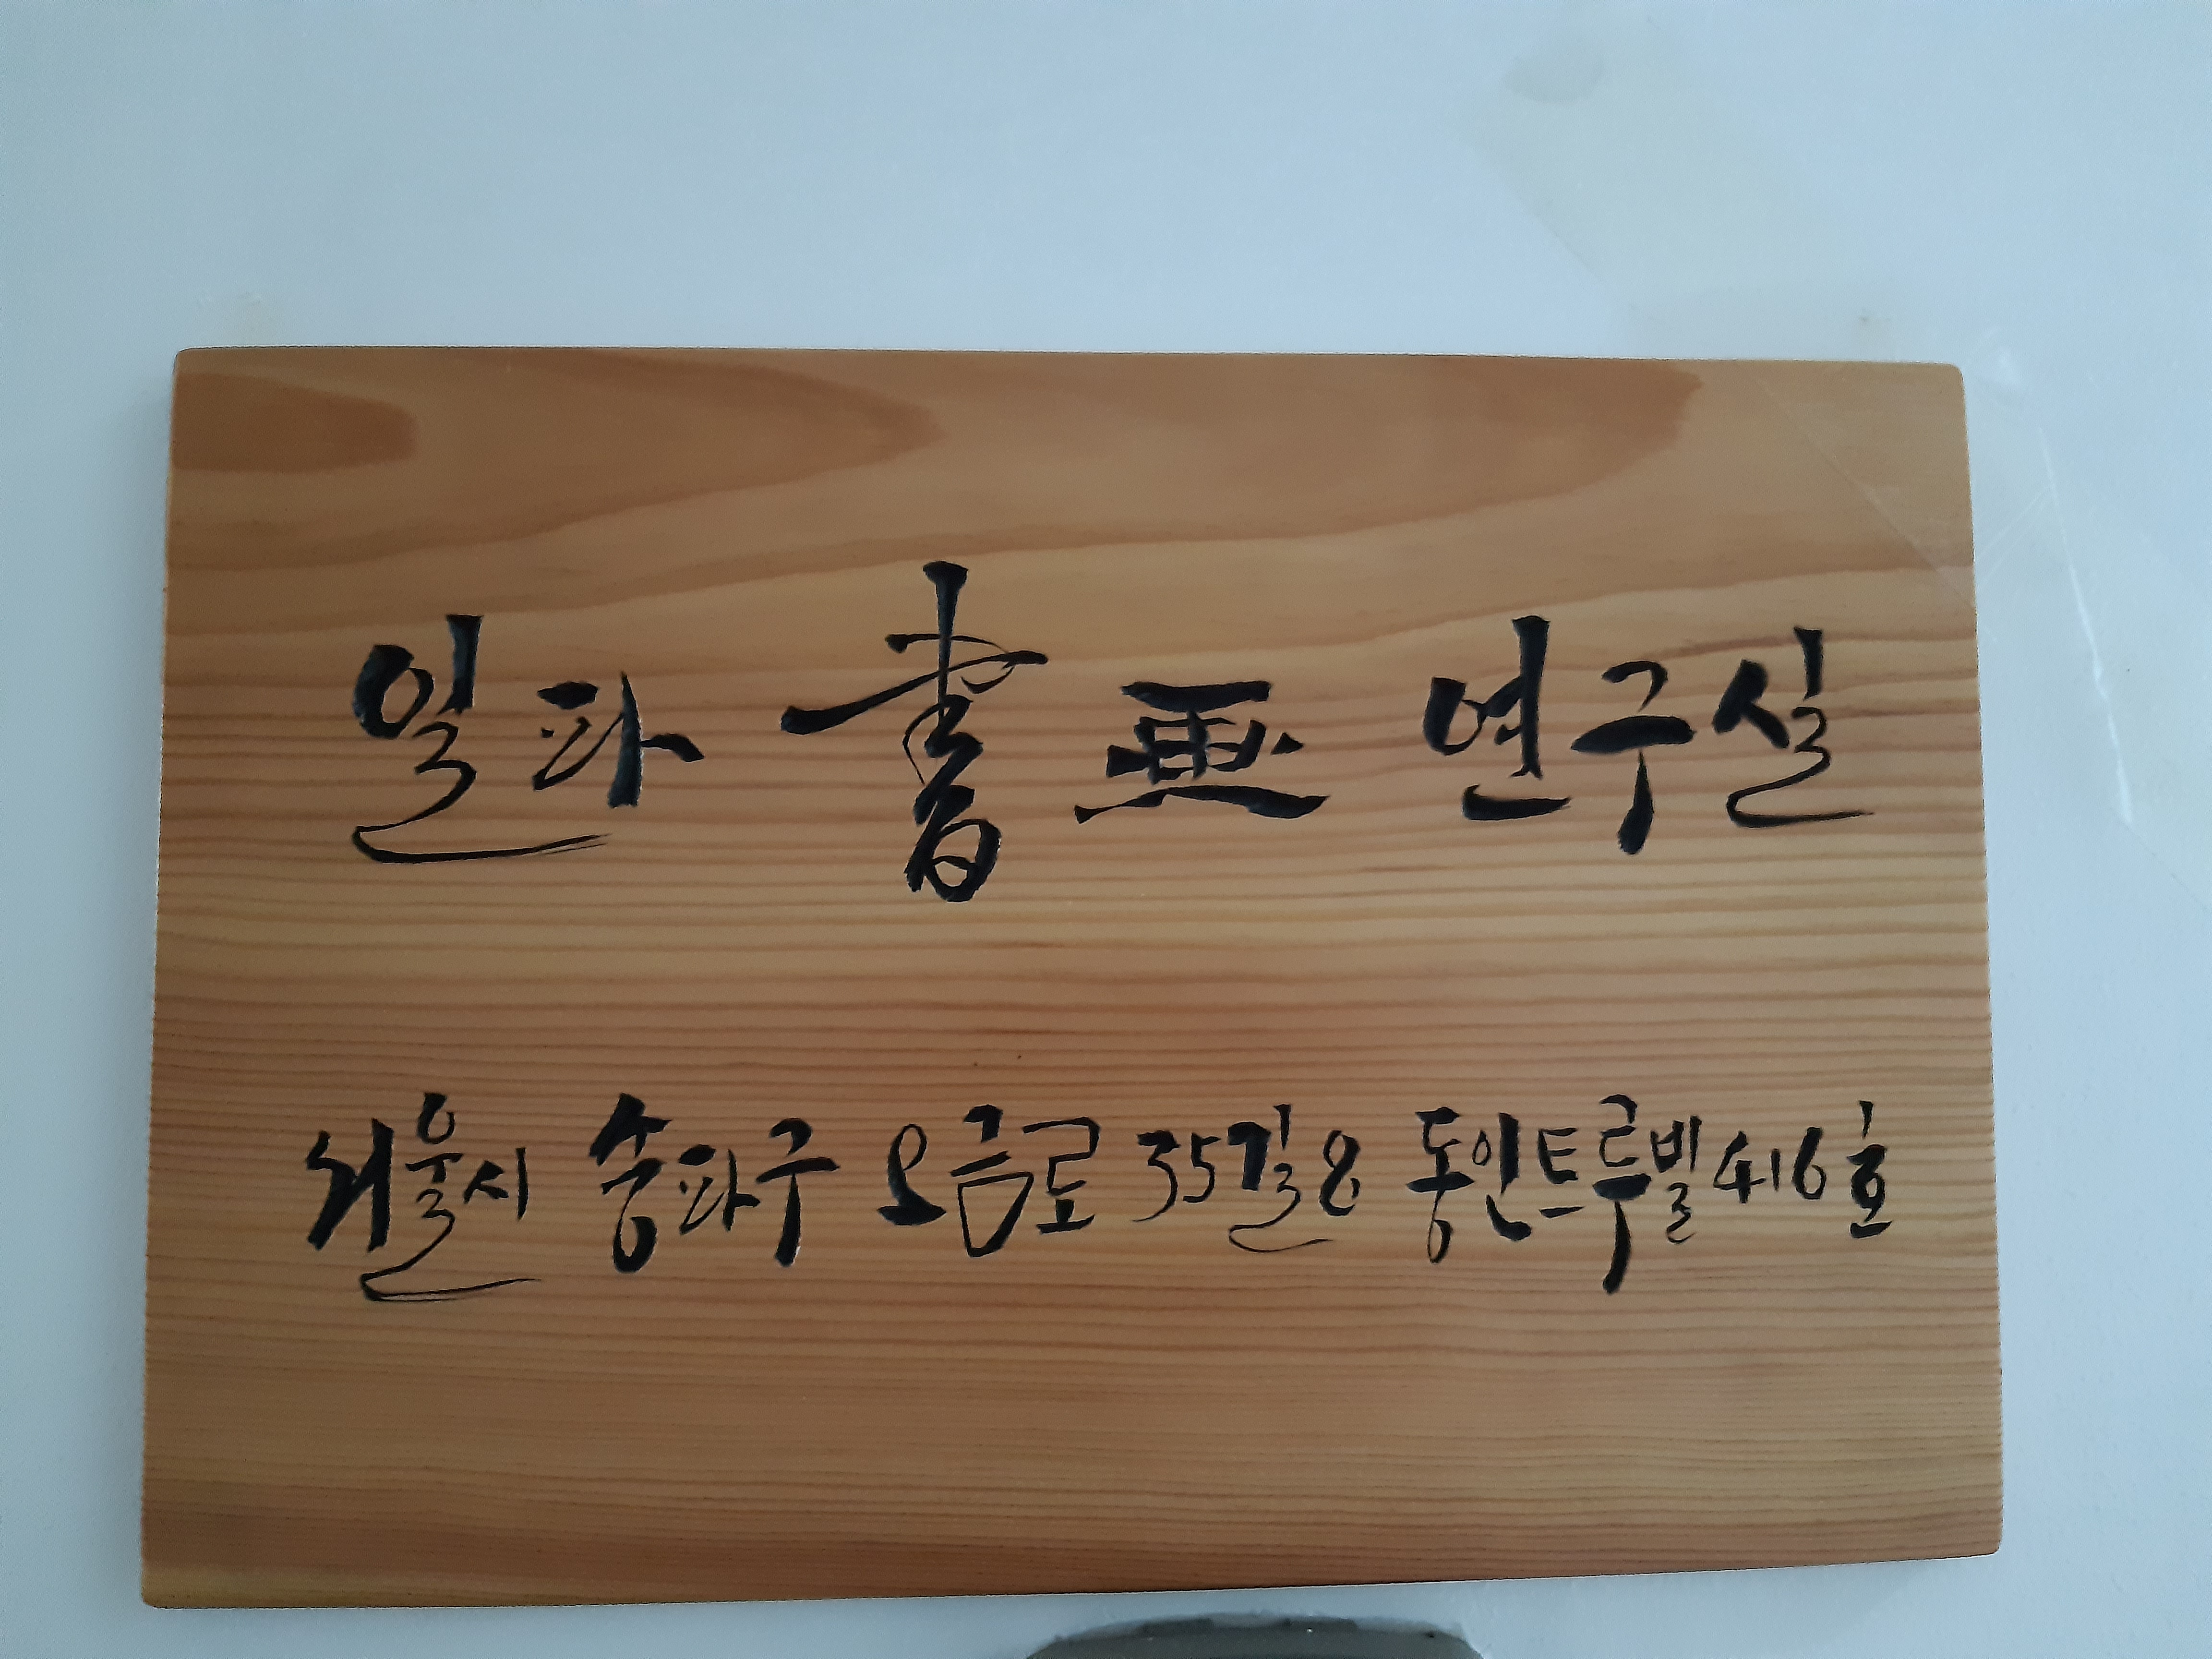 일파 書畫 연구실
서울시 송파구 오금로 35길 8 동인트루빌 416호